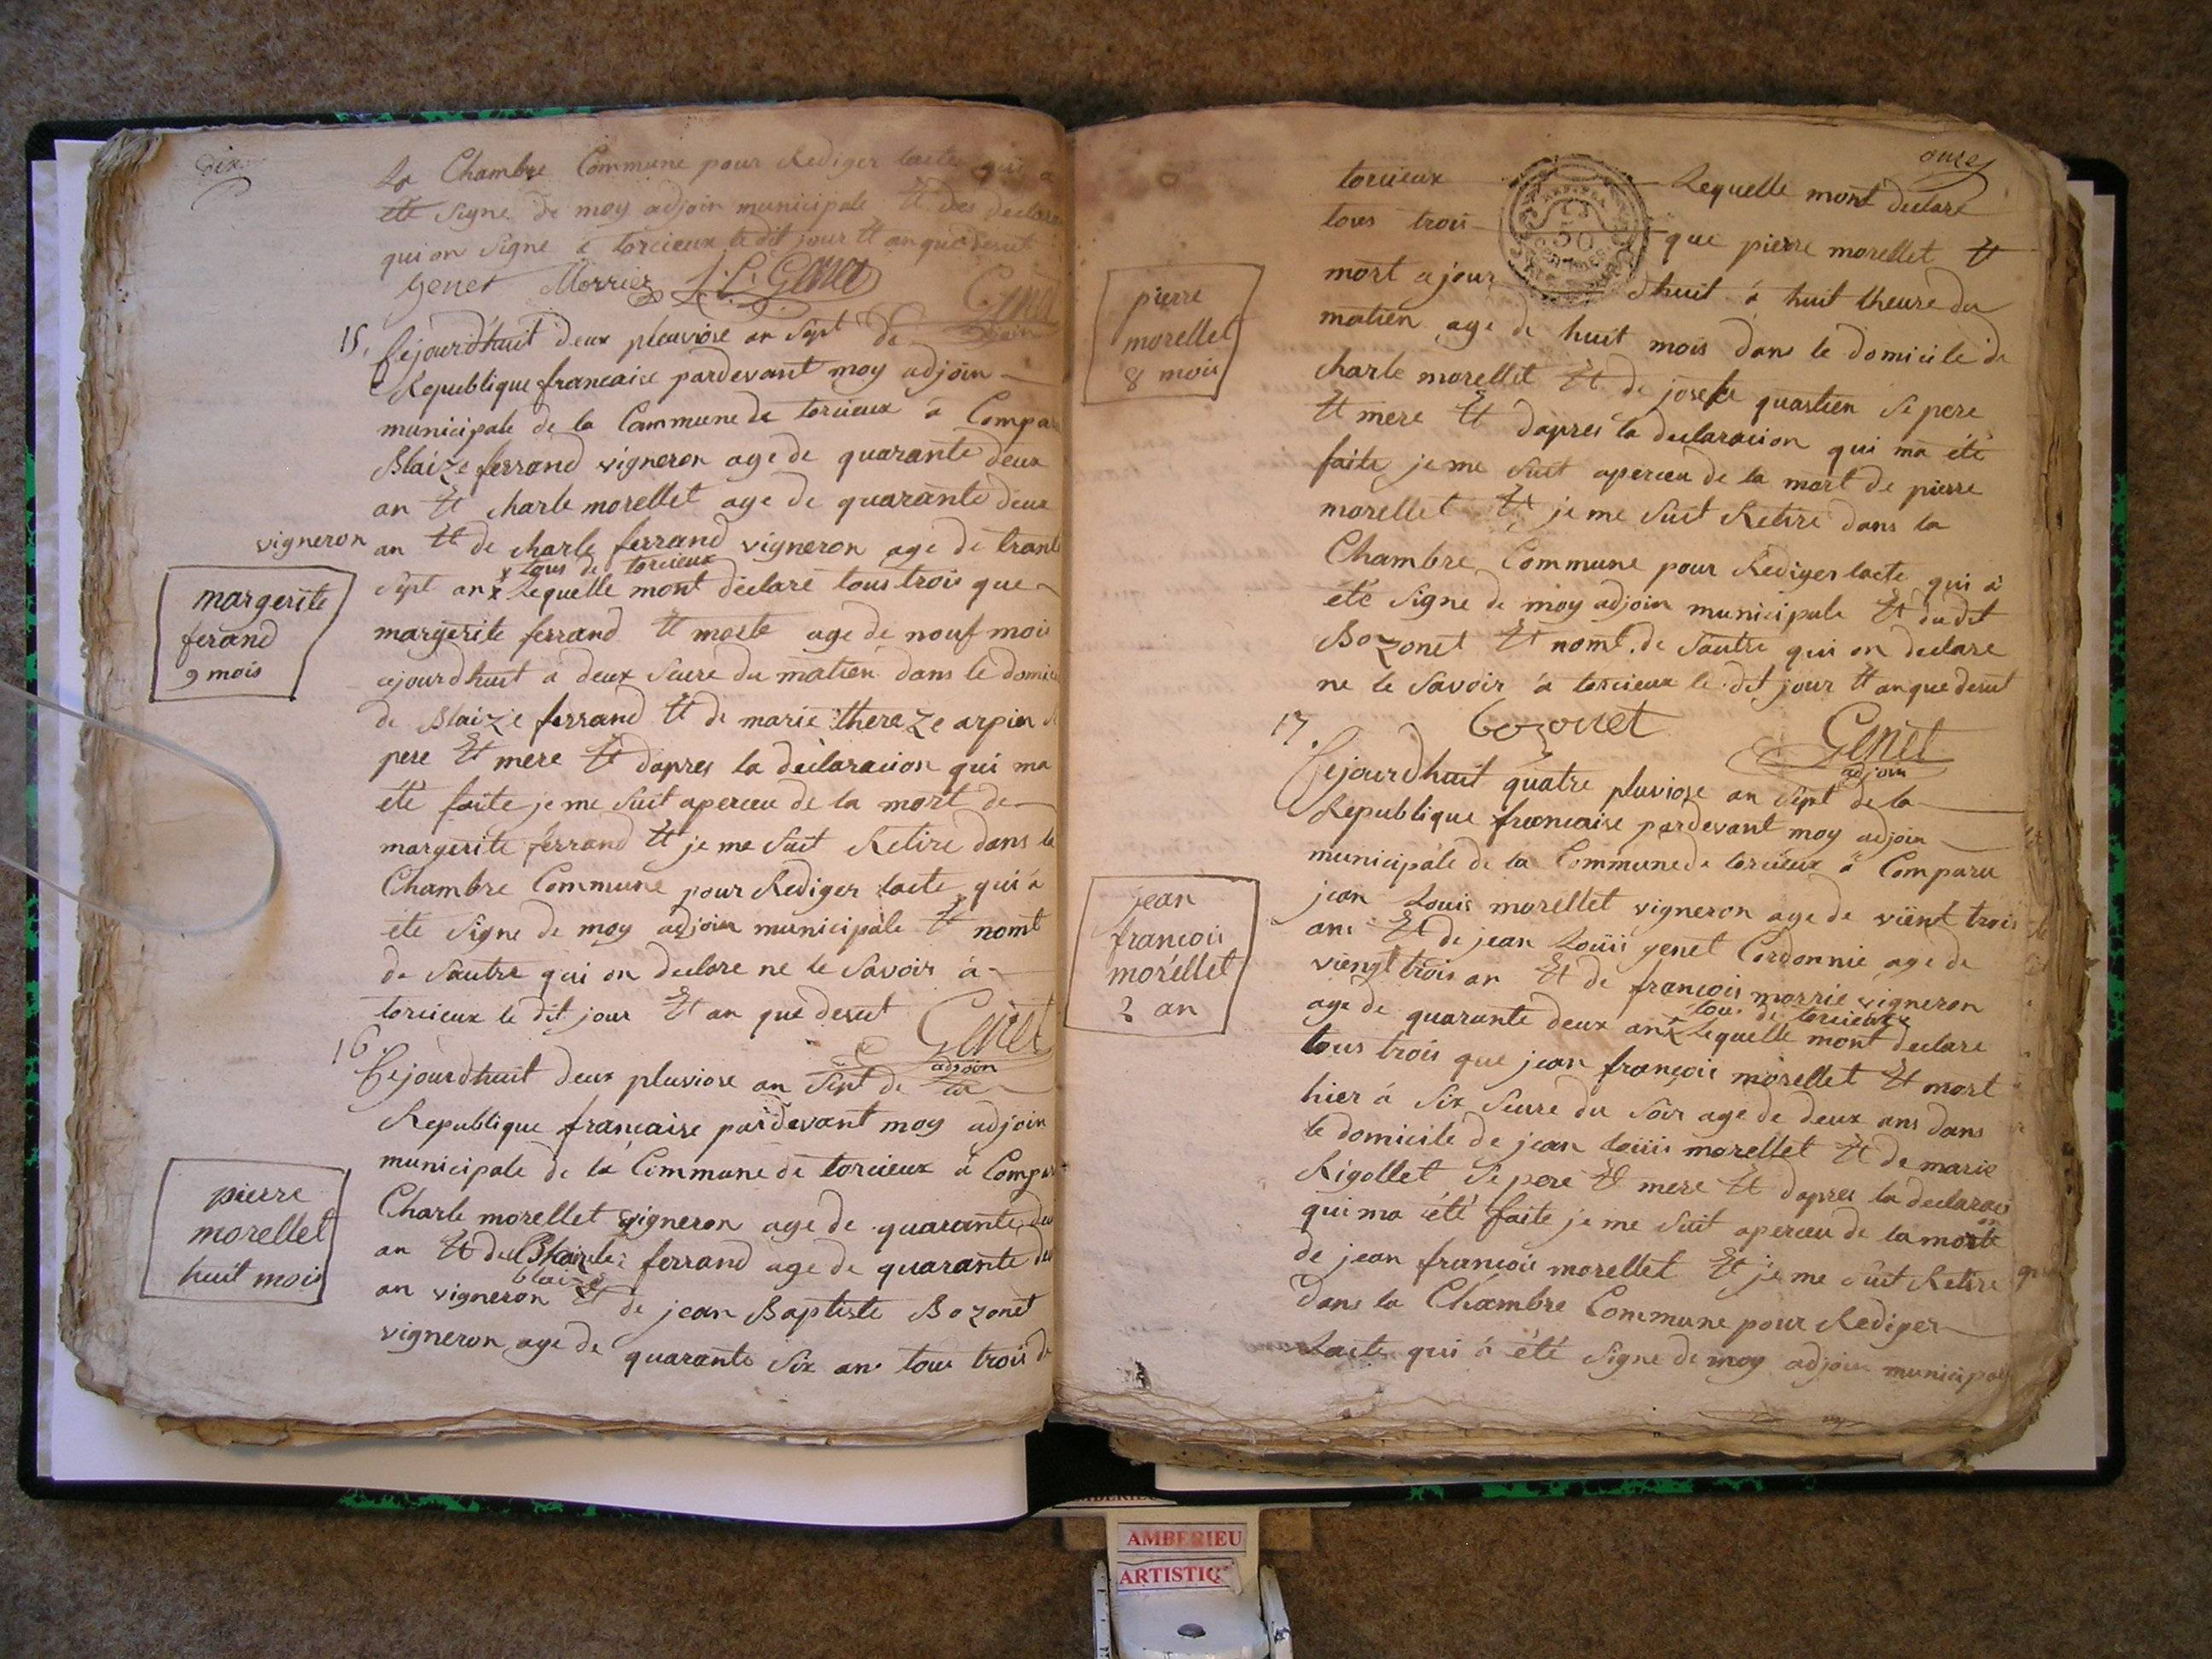 dix
La Chambre Commune pour Rediger lacte qui a
ete signe de moy adjoin municipale Et des declare
qui on signe a torcieux le dit jour Et an que desut
Genet Morrier J. L. Genet Genet
adjoin
15. Cejourdhuit deux pleuviose an sept de
la Republique francaise pardevant moy adjoin
municipale de la Commune de torcieux à Compar
Blaize ferrand vigneron age de quarante deux
an Et charle morellet age de quarante deux
vigneron an Et de charle ferrand vigneron age de trante
x tous de torcieux
sept an x Lequelle mont déclaré tous trois que
margerite
ferand
9 mois
margerite ferrand Et morte age de nouf mois
cejourdhuit a deux seure du matien dans le domici
de Blaize ferrand Et de marie thereze arpien
pere Et mere Et dapres la déclaracion qui ma
été faite je me suit aperceu de la mort de
margerite ferrand Et je me suit Retire dans la
Chambre Commune pour Rediger lacte qui à
ete signe de moy adjoin municipale Et nomt
de sautre qui on declare ne le savoir à
torcieux le dit jour Et an que desut
Genet
adjoin
16. Cejourdhuit deux pluviose an sept de la
Republique francaise pardevant moy adjoin
municipale de la Commune de torcieux à Compar
pierre
morellet
huit mois
Charle morellet vigneron age de quarante deu
an Et de ferrand age de quarante deu
blaize
an vigneron Et de jean Baptiste Bozonet
vigneron age de quarante six an tous trois de
onze
torcieux Lequelle mont declare
50
CENTIMES
tous trois que pierre morellet Et
pierre
morellet
8 mois
mort cejour dhuit à huit theure du
matien age de huit mois dans le domicile de
charle morellet Et de josefte quastien se pere
Et mere Et dapres la declaracion qui ma été
faite je me suit aperceu de la mort de pierre
morellet Et je me suit Retire dans la
Chambre Commune pour Rediger lacte qui à
été signe de moy adjoin municipale Et dudit
Bozonet Et nomt de sautre qui on declare
ne le savoir à torcieux le dit jour Et an que desut
bozonet Genet
adjoin
17. Cejourdhuit quatre pluviose an sept de la
Republique francaise pardevant moy adjoin
municipale de la Commune de torcieux à Comparu
jean
francois
morellet
2 an
jean Louis morellet vigneron age de vient trois
ans Et de jean Louis genet Cordonnié age de
viengt trois an Et de francois morrie vigneron
tous de torcieux x
age de quarante deux an x Lequelle mont declare
tous trois que jean françois morellet Et mort
hier à six seure du soir age de deux ans dans
le domicile de jean louis morellet Et de marie
Rigollet se pere Et mere Et dapres la declaraci
on
qui ma été faite je me suit aperceu de la morte
de jean francois morellet Et je me suit Retire
dans la Chambre Commune pour Rediger
Lacte qui à été signe de moy adjoin municipal
AMBERIEU
ARTISTIQ